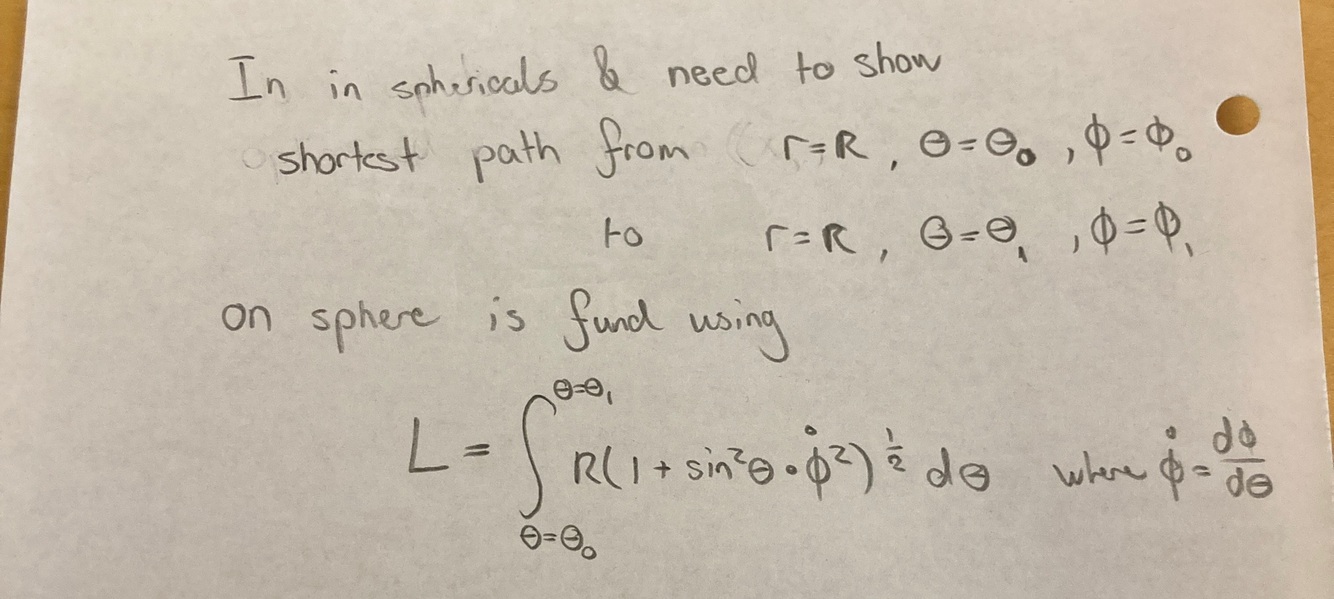 In in sphericals & need to show
shortest path from r=R, θ=θ₀, ϕ=ϕ₀
to r=R, θ=θ₁, ϕ=ϕ₁
on sphere is fund using
L = ∫_{θ=θ₀}^{θ=θ₁} R(1 + sin²θ • ϕ̇²)^{1/2} dθ where ϕ̇ = dϕ/dθ